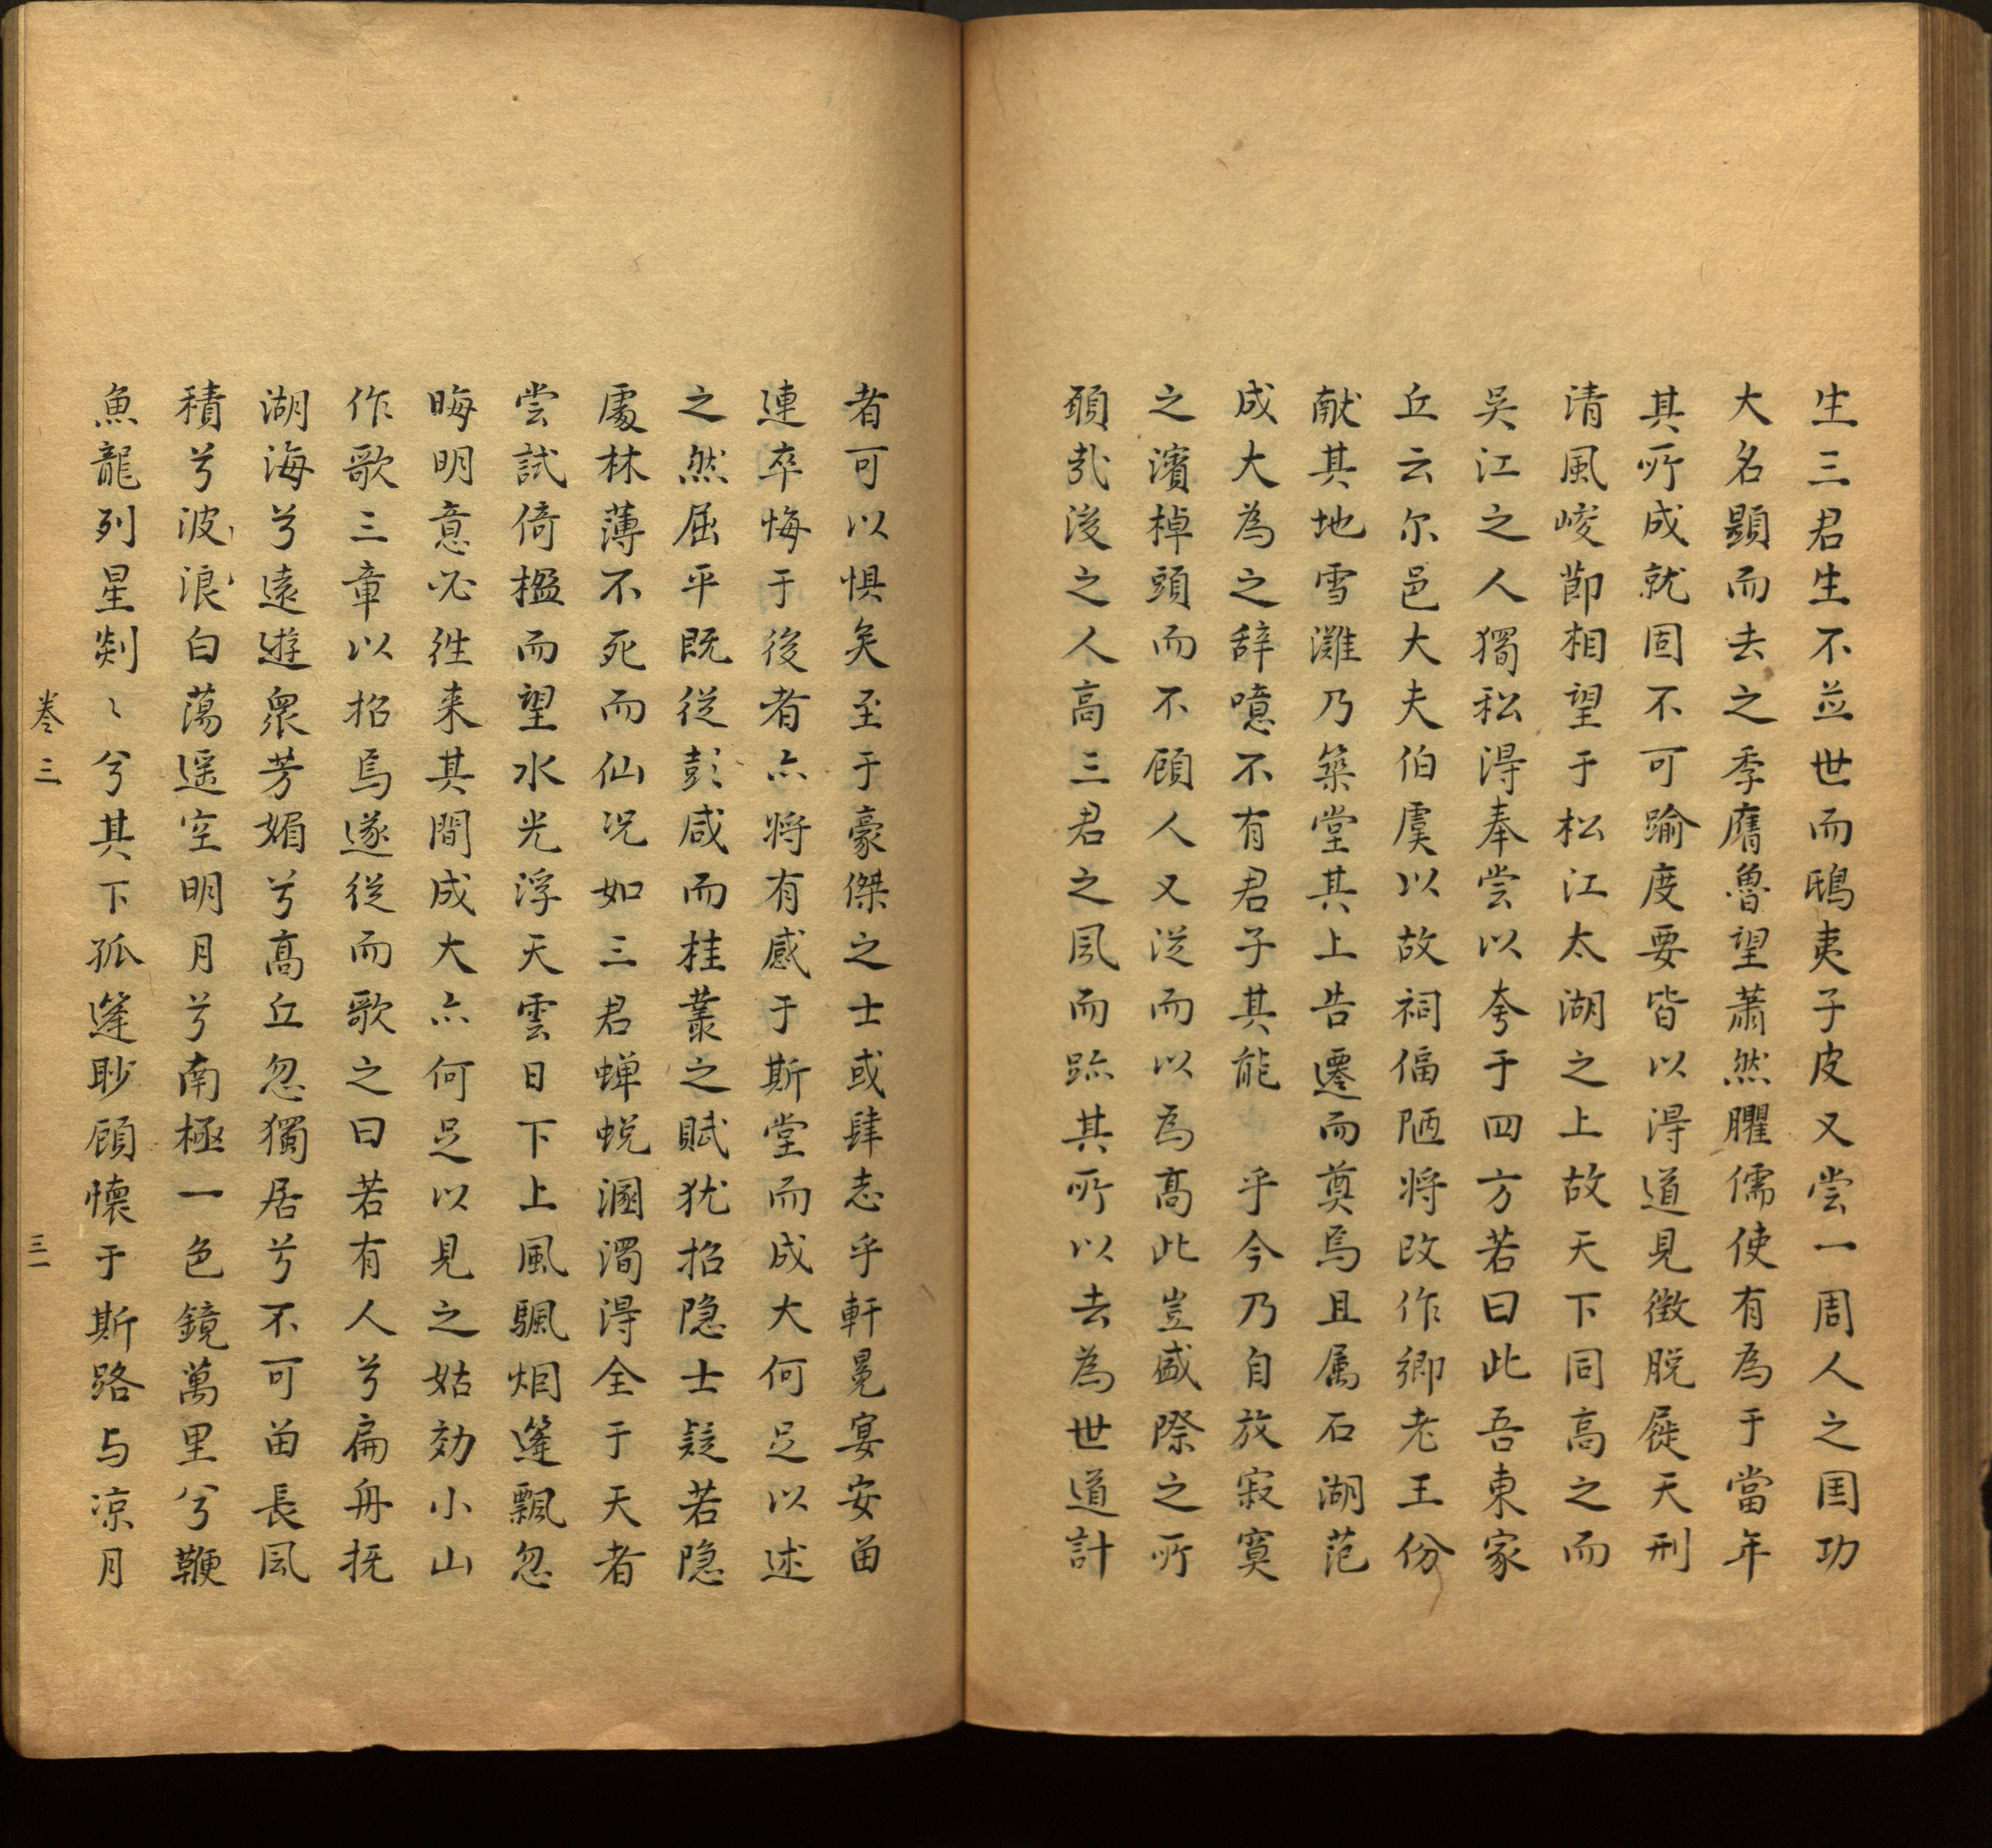 生三君生不並世而鴟夷子皮又嘗一周人之国功
大名顕而去之季鷹魯望蕭然臞儒使有為于當年
其所成就固不可踰度要皆以淂道見徴脱屣天刑
清風峻莭相望于松江太湖之上故天下同高之而
吳江之人獨私淂奉嘗以夸于四方若曰此吾東家
丘云尓邑大夫伯虞以故祠偪陋将改作鄉老王份
献其地雪灘乃築堂其上告遷而奠焉且属石湖范
成大為之辞噫不有君子其能　乎今乃自放寂寞
之濱棹頭而不顧人又従而以為髙此豈盛際之所
頋㢤後之人高三君之風而跡其所以去為世道計
者可以惧矣至于豪傑之士或肆志乎軒冕宴安畄
連卒悔于後者亦将有感于斯堂而成大何足以述
之然屈平既従彭咸而桂叢之賦犹招隐士疑若隐
處林薄不死而仙况如三君蝉蛻溷濁得全于天者
尝試倚楹而望水光浮天雲日下上風颿烟篷飄忽
晦明意必往来其間成大亦何足以見之姑効小山
作歌三章以招焉遂従而歌之曰若有人兮扁舟抚
湖海兮遠遊衆芳媚兮高丘忽獨居兮不可畄長風
積兮波浪白蕩遥空明月兮南極一色鏡萬里兮鞭
魚龍列星剡〻兮其下孤篷眇顧懐于斯路与凉月
卷三　三一